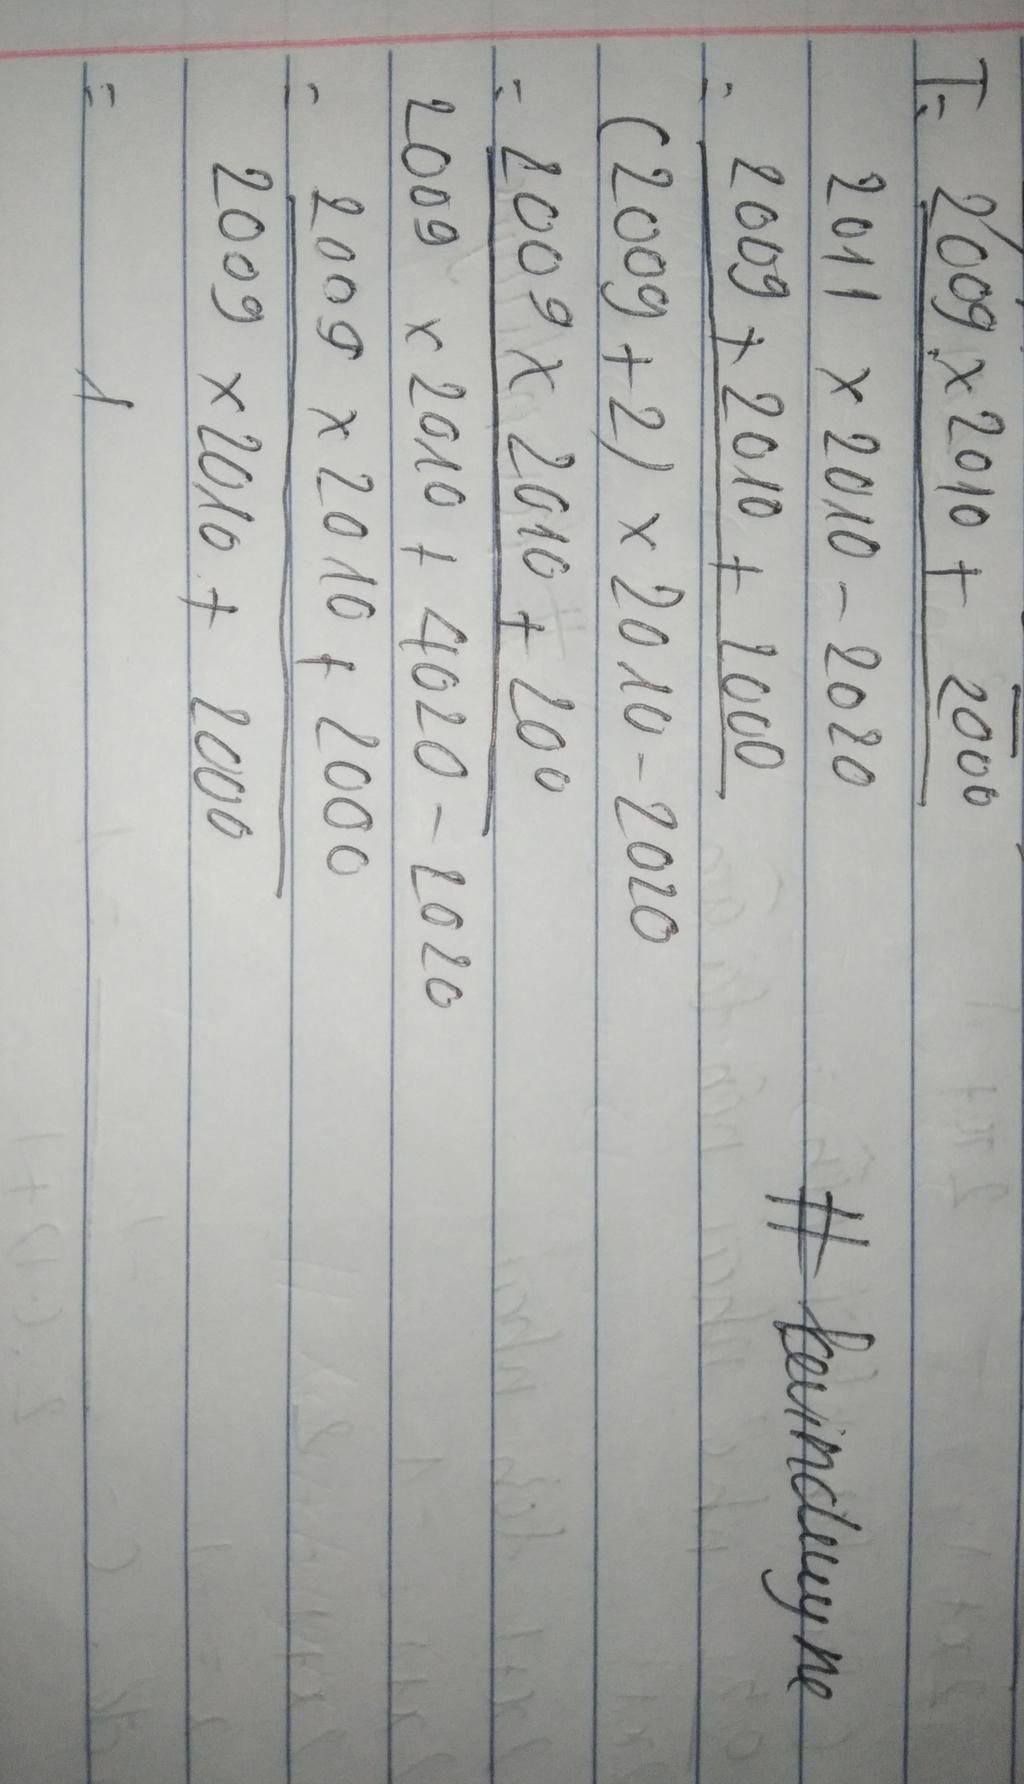 T = 2009 x 2010 + 2000
2011 x 2010 - 2020
= 2009 + 2010 + 2000
(2009 + 2) x 2010 - 2020
= 2009 x 2010 + 200
2009 x 2010 + 4020 - 2020
= 2009 x 2010 + 2000
2009 x 2010 + 2000
= 1